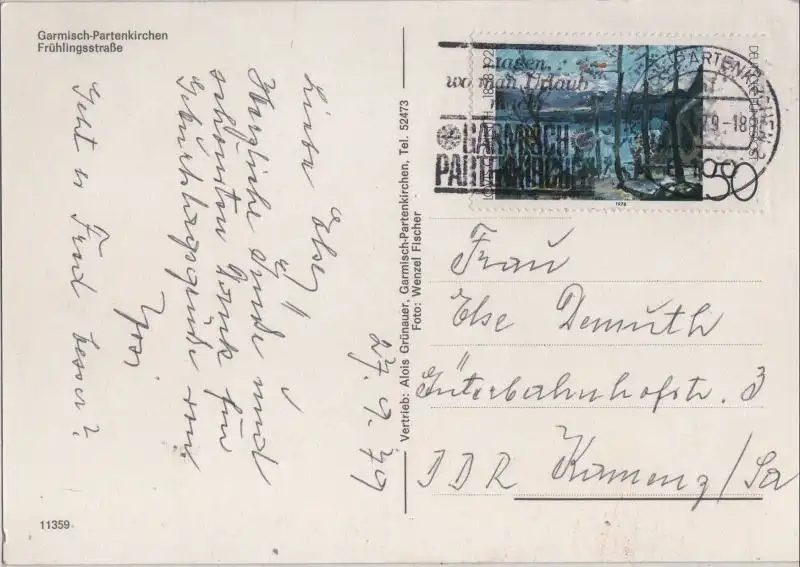 Garmisch-Partenkirchen
Frühlingsstraße
27. 9. 79
Liebe Else,
Herzliche Grüße und
schönsten Dank für
Geburtstagsgrüße von
Geht es Fred besser?
11359
Vertrieb: Alois Grünauer, Garmisch-Partenkirchen, Tel. 52473
Foto: Wenzel Fischer
wo man Urlaub
macht
GARMISCH
PARTENKIRCHEN
79-18
80
1978
Frau
Else Demuth
Güterbahnhofstr. 3
DDR Kamenz/Sa